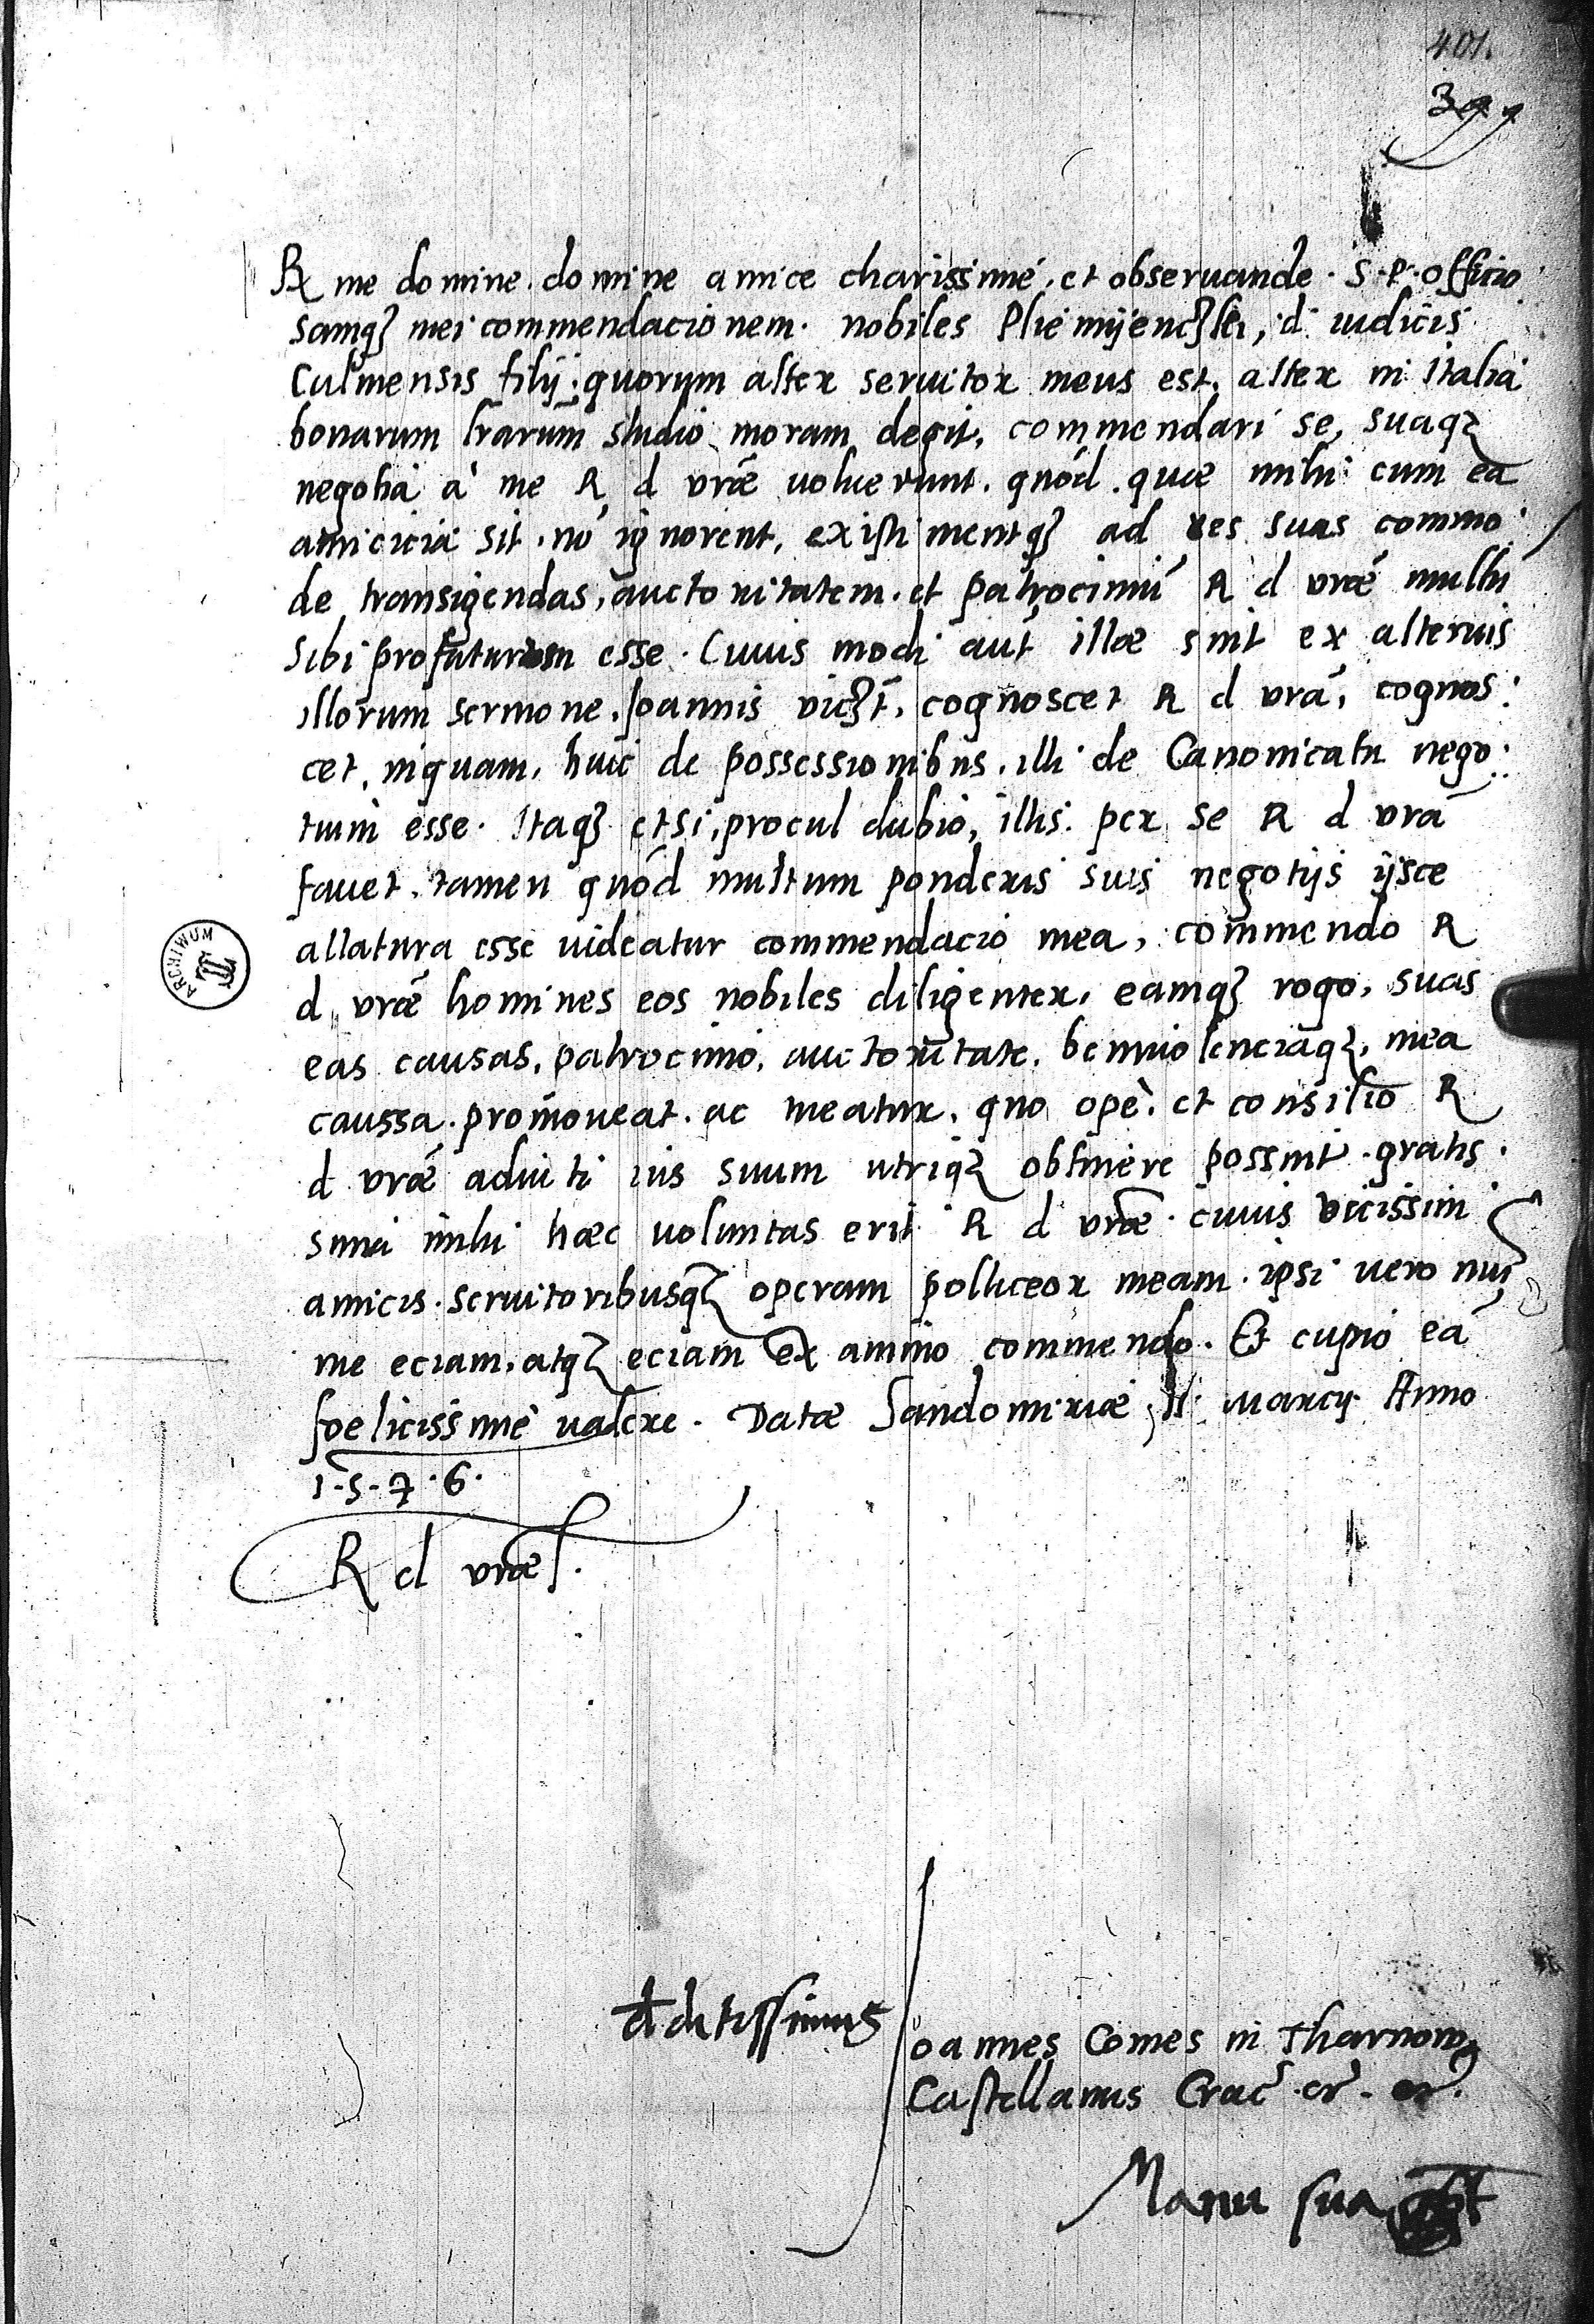 401.
399
Rx me domine domine amice charissime, et obseruande. S. P. officio
samq₃ mei commendacionem. nobiles Pliemijencz̨ki, d iudicis
Culmensis filij: quorum alter seruitor meus est, alter in Italia
bonarum l̃rarum studio moram degit, commendari se, suaq₃
negotia à me R d vr̃æ uoluerunt. quòd quæ mihi cum ea
amicicia sit, nõ ignorent, existimentq₃ ad res suas commo
de transigendas, auctoritatem et patrociniũ R d vr̃æ multũ
sibi profuturum esse. Cuius modi aut̃ illæ sint ex alterius
illorum sermone, Joannis vicz̃t, cognoscet R d vr̃a, cognos:
cet, inquam, huic de possessionibus, illi de Canonicatu nego:
tium esse. Itaq₃ etsi, procul dubio, illis per se R d vr̃a
fauet, tamen quòd multum ponderis suis negotijs ijsce
allatura esse uideatur commendacio mea, commendo R
d vr̃æ homines eos nobiles diligenter, eamq₃ rogo, suas
eas causas, patrocinio, auctoritate, beniuolenciaq₃, mea
caussa promoueat ac tueatur, quo ope, et consilio R
d vr̃æ adiuti ius suum utriq₃ obtinere possint. gratis:
sima mihi hæc uoluntas erit R d vr̃æ. cuius vicissim
amicis seruitoribusq₃ operam polliceor meam. ipsi uero nũc
me eciam, atq₃ eciam ex animo commendo. Et cupio eã
foelicissimè ualere. Datæ Sandomiriæ, II Marcij Anno
1.5.7.6.
R d vr̃æ
ddictissimus
Joannes Comes in Tharnow
Castellanus Crac̃ et̃. et̃.
Manu sua
ARCHIWUM